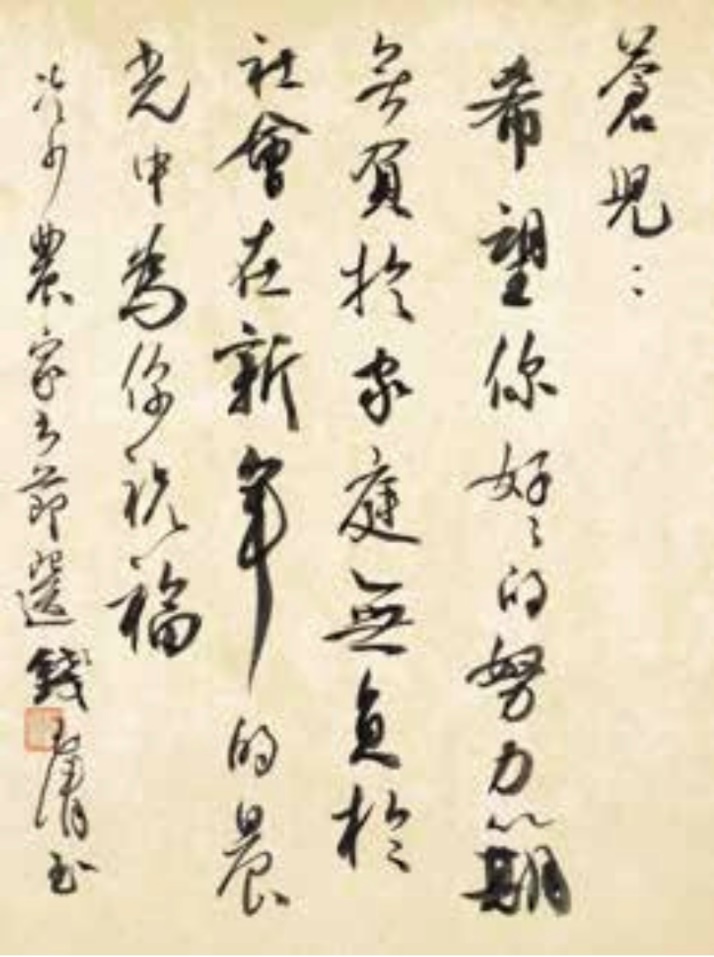 蒼兒：
希望你好〻的努力期
無負於家庭無負於
社會在新年的晨
光中為你祝福
冷少農家书節選 錢 书